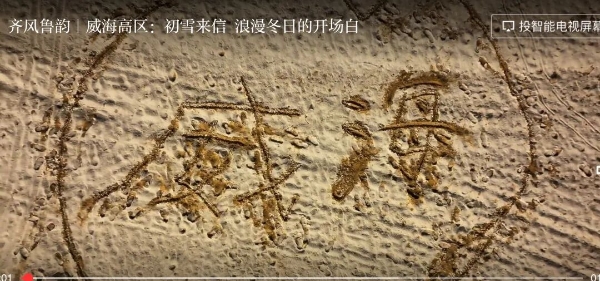 齐风鲁韵｜威海高区：初雪来信 浪漫冬日的开场白
投智能电视屏幕
威海
01
01